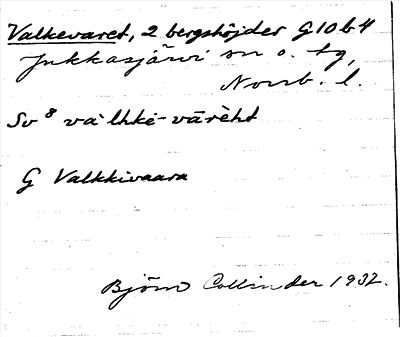 Valkevaret, 2 bergshöjder G10b4
Jukkasjärvi sn o. tg,
Norrb. l.
Sv 8 va'lhkē-vārèht
G Valkkivaara
Björn Collinder 1932.